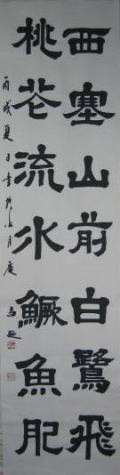 西塞山前白鷺飛
桃花流水鱖魚肥
丙戌夏日書於